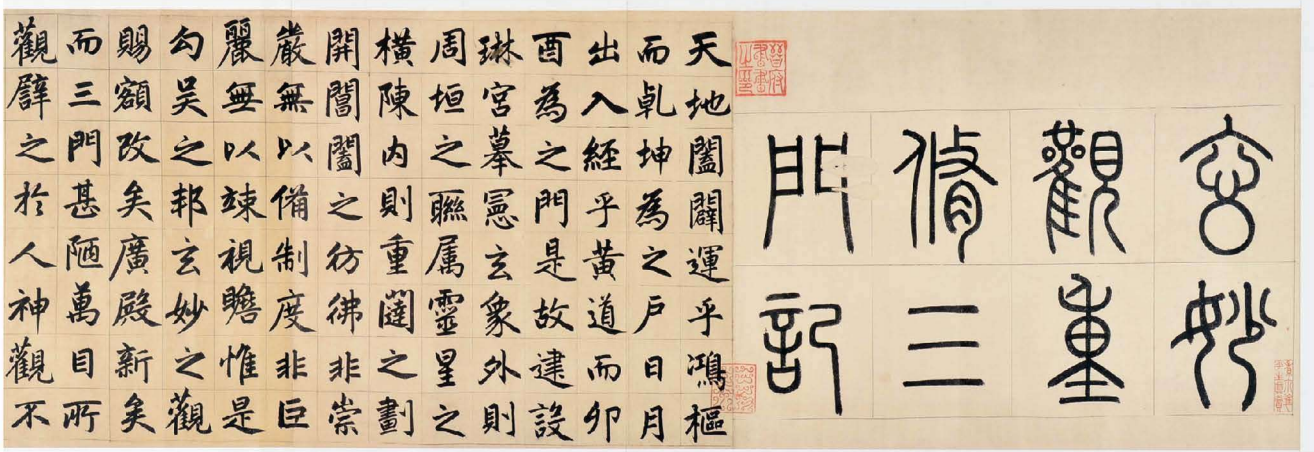 玄妙
觀重
脩三
門記
晉府書畫之印
天地闔闢運乎鴻樞
而乹坤為之戶日月
出入經乎黃道而卯
酉為之門是故建設
琳宮摹憲玄象外則
周垣之聯属靈星之
橫陳內則重闥之劃
開閶闔之彷彿非崇
嚴無以備制度非巨
麗無以竦視瞻惟是
勾吳之邦玄妙之觀
賜額改矣廣殿新矣
而三門甚陋萬目所
觀譬之於人神觀不